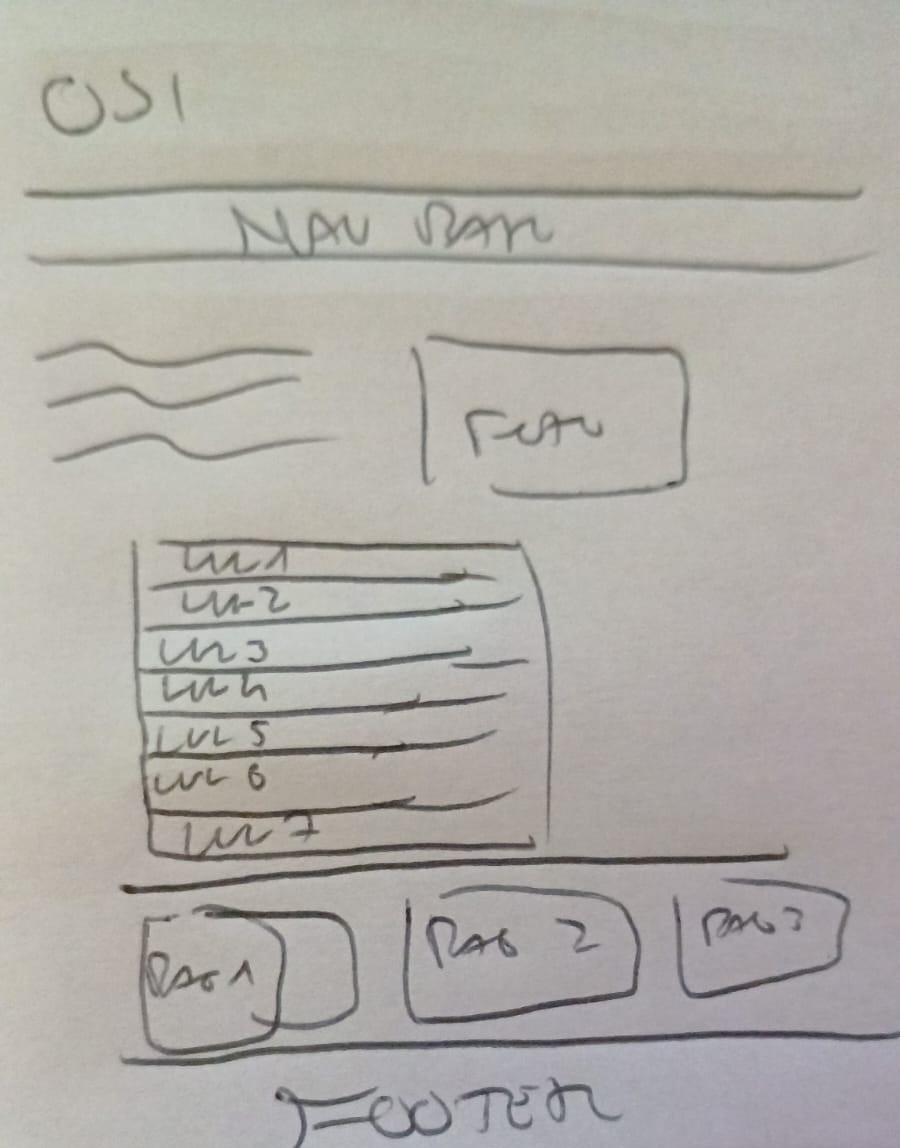 OSI
NAV BAR
LVL 1
LVL 2
LVL 3
LVL 4
LVL 5
LVL 6
LVL 7
PAG 1
PAG 2
PAG 3
FOOTER